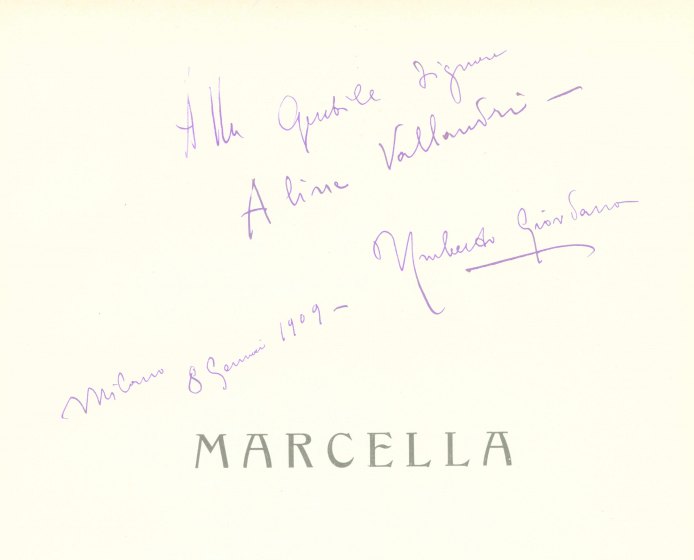 Alla Gentile Signora
Aline Vallandri —
Umberto Giordano
Milano 8 Gennai 1909 —
MARCELLA